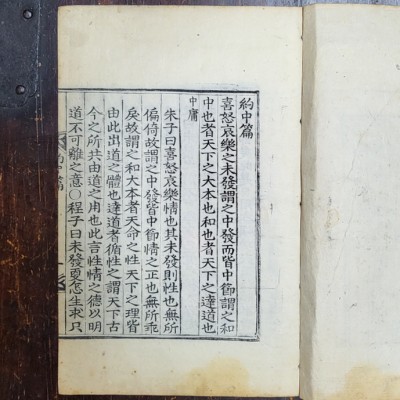 約中篇
喜怒哀樂之未發謂之中發而皆中節謂之和
中也者天下之大本也和也者天下之達道也
中庸
朱子曰喜怒哀樂情也其未發則性也無所
偏倚故謂之中發皆中節情之正也無所乖
戾故謂之和大本者天命之性天下之理皆
由此出道之體也達道者循性之謂天下古
今之所共由道之用也此言性情之德以明
道不可離之意○程子曰未發更怎生求只
約中篇